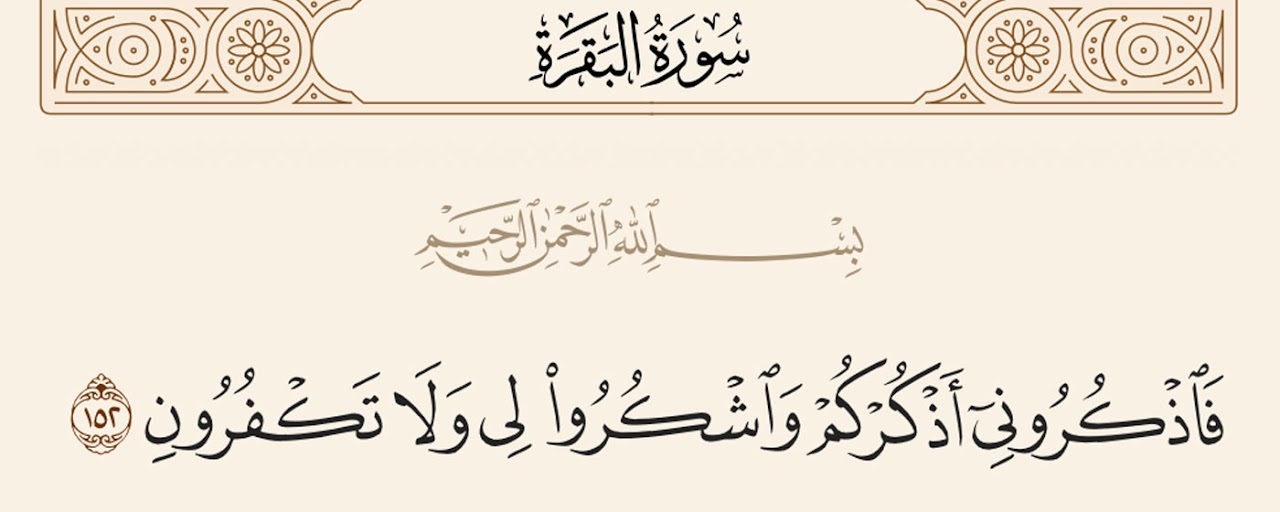 سُورَةُ البَقَرَةِ
بِسْمِ ٱللَّهِ ٱلرَّحْمَٰنِ ٱلرَّحِيمِ
فَٱذْكُرُونِىٓ أَذْكُرْكُمْ وَٱشْكُرُوا۟ لِى وَلَا تَكْفُرُونِ ١٥٢